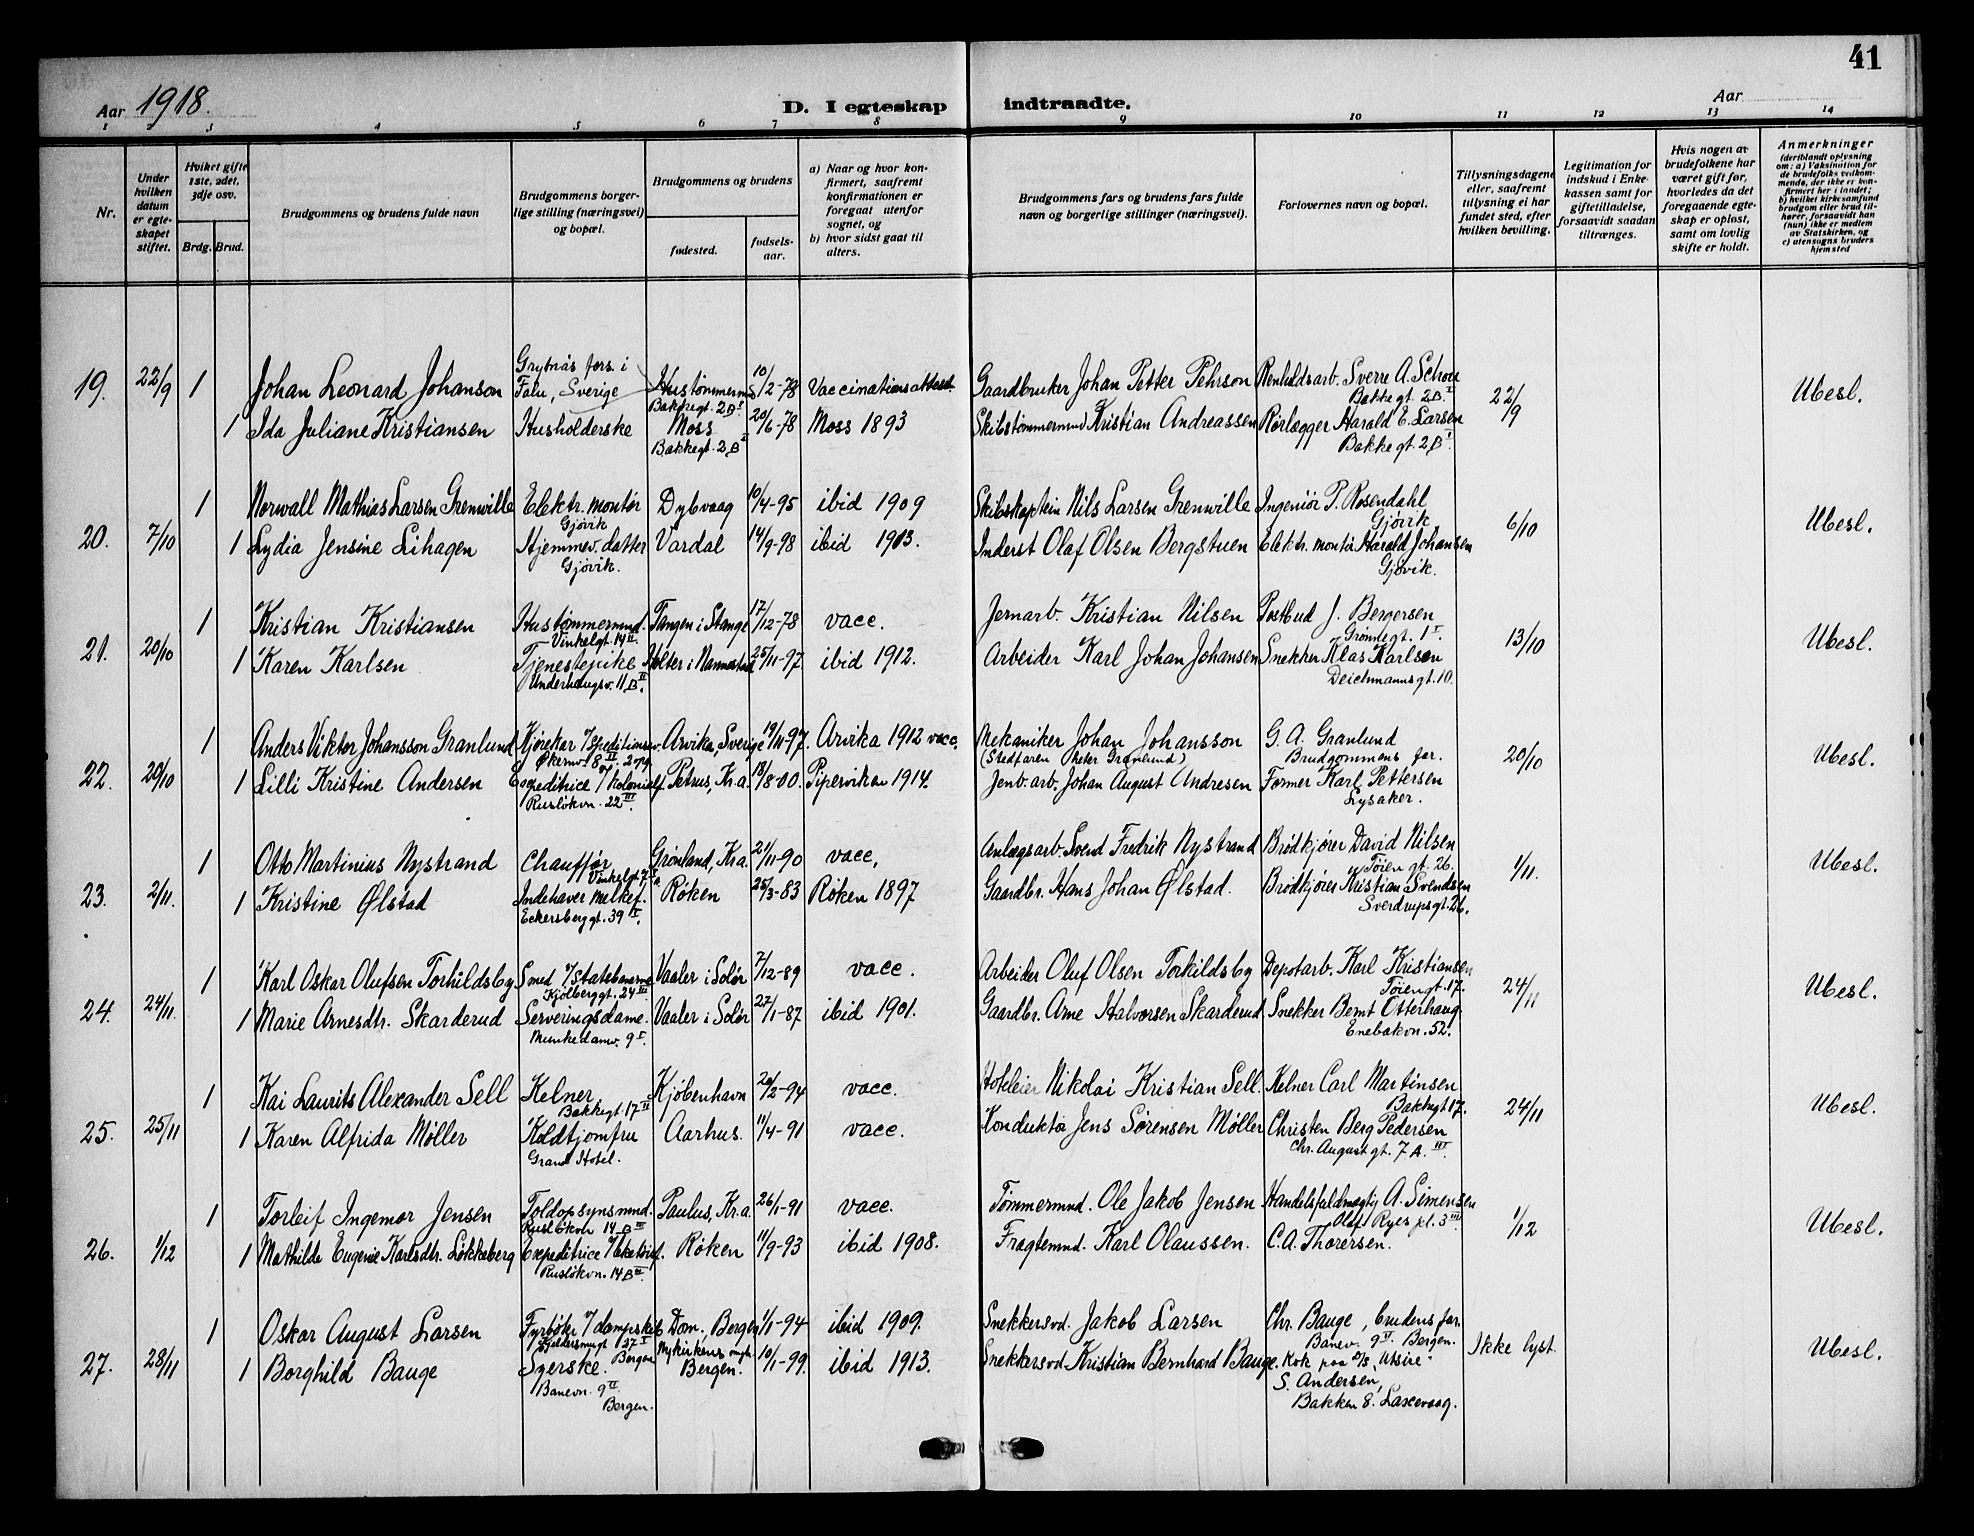 41
Aar 1918.
D. I egteskap indtraadte.
Aar
1 3 4 5 6 7 8 9 10 11 12 13 14
Nr.
Under hvilken datum er egteskapet stiftet.
Hvilket gifte 1ste, 2det, 3dje osv.
Brdg. Brud.
Brudgommens og brudens fulde navn
Brudgommens borgerlige stilling (næringsvei) og bopæl.
Brudgommens og brudens
fødested.
fødselsaar.
a) Naar og hvor konfirmert, saafremt konfirmationen er foregaat utenfor sognet, og
b) hvor sidst gaat til alters.
Brudgommens fars og brudens fars fulde navn og borgerlige stillinger (næringsvei).
Forlovernes navn og bopæl.
Tillysningsdagene eller, saafremt tillysning ei har fundet sted, efter hvilken bevilling.
Legitimation for indskud i Enkekassen samt for giftetilladelse, forsaavidt saadan tiltrænges.
Hvis nogen av brudefolkene har været gift før, hvorledes da det foregaaende egteskap er opløst, samt om lovlig skifte er holdt.
Anmerkninger
(deriblandt oplysning om: a) Vaksination for de brudefolks vedkommende, der ikke er konfirmert her i landet; b) hvilket kirkesamfund brudgom eller brud tilhører, forsaavidt han (hun) ikke er medlem av Statskirken, og c) utensogns bruders hjemsted
19. 22/9 1 Johan Leonard Johanson Grytnäs förs. i Falu, Sverige Hustømmermd Bakkegt. 2B I 10/2-78 Vaccinationsattest Gaardbruker Johan Petter Pehrson Renholdsarb. Sverre A. Schou Bakkegt. 2B. I 22/9 Ubesl.
1 Ida Juliane Kristiansen Husholderske Moss Bakkegt. 2B I 20/6-78 Moss 1893 Skibstømmermnd Kristian Andreassen Rørlægger Harald E. Larsen Bakkegt. 2B I
20. 7/10 1 Norwall Mathias Larsen Grenwille Elektr. montør Gjøvik Dybvaag 10/4-95 ibid 1909 Skibskaptein Nils Larsen Grenwille Ingeniør P. Rosendahl Gjøvik 6/10 Ubesl.
1 Lydia Jensine Lihagen Hjemmev. datter Gjøvik. Vardal 14/9-98 ibid 1913. Inderst Olaf Olsen Bergstuen Elektr. montør Harald Johansen Gjøvik.
21. 20/10 1 Kristian Kristiansen Hustømmermnd. Vinkelgt. 14 II Tangen i Stange 17/12-78 vacc. Jernarb. Kristian Nilsen Postbud J. Bergersen Grønlegt. 1 I. 13/10 Ubesl.
1 Karen Karlsen Tjenestepike Underhaugsv. 11B II. Holter i Nannestad 25/11-97 ibid 1912. Arbeider Karl Johan Johansen Snekker Klas Karlsen Deichmannsgt. 10.
22. 20/10 1 Anders Viktor Johansson Granlund Kjørekar v/Speditionsv. Økernv. 8 II. 2opg. Arvika, Sverige 19/11-97. Arvika 1912 vacc. Mekaniker Johan Johansson (Stedfaren Peter Granlund) G. A. Granlund Brudgommens far. 20/10 Ubesl.
1 Lilli Kristine Andersen Expeditrice v/Kolonialf. Rusløkvn. 22 III. Petrus, Kr.a. 18/8-00. Pipervika 1914. Jenb. arb. Johan August Andresen Former Karl Pettersen Lysaker.
23. 2/11. 1 Otto Martinius Nystrand Chauffør Grønland, Kr.a. 21/11-90 vacc. Anlægsarb. Svend Fredrik Nystrand Brødkjører David Nilsen Tøiengt. 26. 1/11. Ubesl.
1 Kristine Ølstad Indehaver Melkef. Eckersberggt. 39 IV. Røken 25/3-83 Røken 1897 Gaardbr. Hans Johan Ølstad. Brødkjører Kristian Svendsen Sverdrupsgt. 26.
24. 24/11. 1 Karl Oskar Olufsen Torkildsby Smed v/Statsbanerne Kjølberggt. 24 III. Vaaler i Solør 7/12-89 vacc. Arbeider Oluf Olsen Torkildsby Depotarb. Karl Kristiansen Tøiengt. 17. 24/11 Ubesl.
1 Marie Arnesdtr. Skarderud Serveringsdame. Munkedamv. 9 I. Vaaler i Solør 27/1-87 ibid 1901. Gaardbr. Arne Halvorsen Skarderud Snekker Bernt Otterhaug. Enebakvn. 52.
25. 25/11 1 Kai Laurits Alexander Sell Kelner, Bakkegt 17 II Kjøbenhavn 20/2-94 vacc. Hoteleier Nikolai Kristian Sell. Kelner Carl Martinsen Bakkegt 17. 24/11 Ubesl.
1 Karen Alfrida Møller Koldtjomfru Grand Hotel. Aarhus. 11/4-91 vacc. Konduktør Jens Sørensen Møller Christen Berg Pedersen Chr. Augustgt. 7A. III.
26. 1/12 1 Torleif Ingemor Jensen Toldopsynsmnd. Rusløkvn 14B III Paulus, Kr.a. 26/1-91 vacc. Tømmermnd. Ole Jakob Jensen Handelsfuldmegtig A. Simensen Olaf Ryes pl. 3 III 1/12 Ubesl.
1 Mathilde Eugenie Karlsdtr. Løkkeberg Expeditrice Rusløkvn. 14B III. Røken 11/9-93 ibid 1908. Fragtemnd. Karl Olaussen. C.A. Thoresen.
27. 28/11 1 Oskar August Larsen Fyrbøter v/dampskib Bergen Dom., Bergen 1/1-94 ibid 1909. Snekkersvd. Jakob Larsen Chr. Bauge, brudens far. Banev. 9 II Bergen. Ikke lyst. Ubesl.
1 Borghild Bauge Syerske. Banevn. 9 II Bergen. Nykirkens mgh. Bergen. 10/1-99. ibid 1913. Snekkersvd Kristian Bernhard Bauge. Kok paa D/S "Utsire" S. Andersen, Bakken 8. Laxevaag.